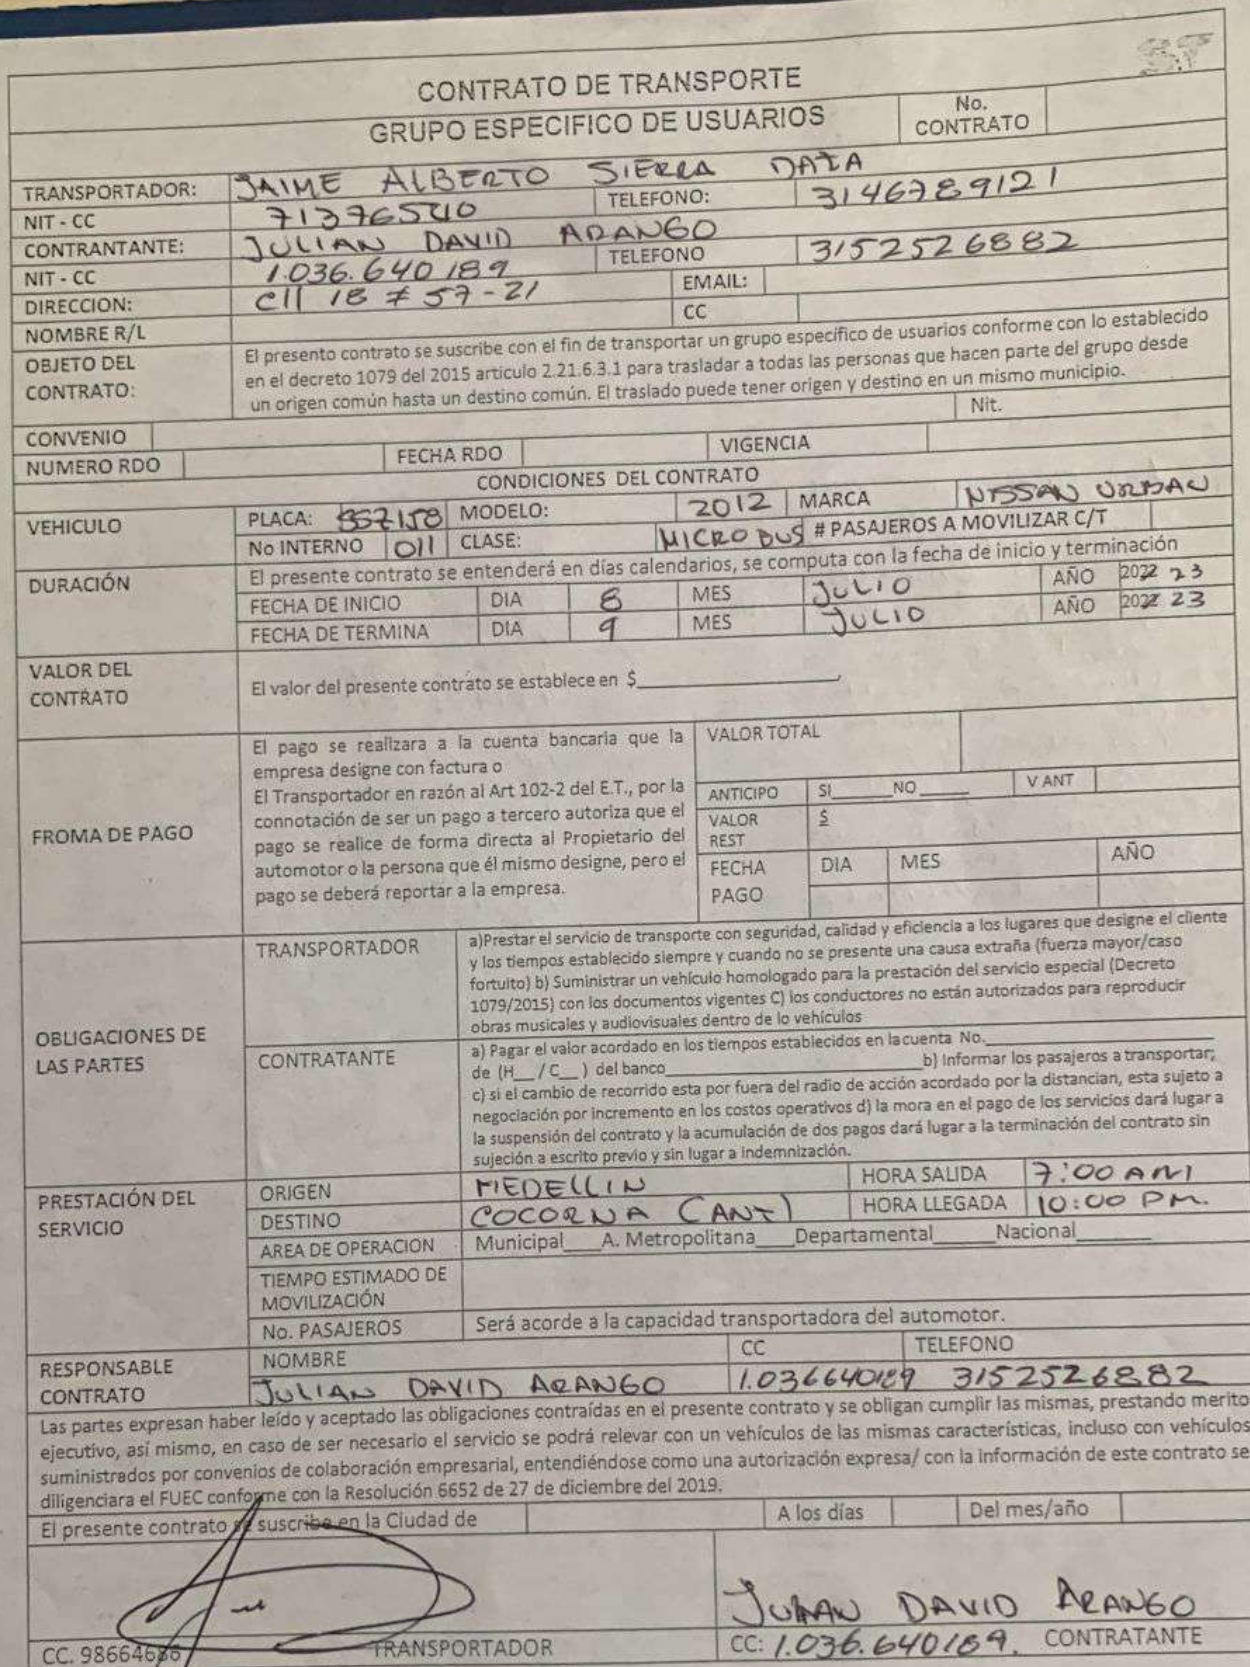 CONTRATO DE TRANSPORTE
GRUPO ESPECIFICO DE USUARIOS
No. CONTRATO
TRANSPORTADOR: JAIME ALBERTO SIERRA
NIT - CC TELEFONO: 3146789121
CONTRANTANTE: JULIAN DAVID ARANGO
NIT - CC 1.036.640189 TELEFONO 3152526882
DIRECCION: Cll 18 # 57-21 EMAIL:
NOMBRE R/L CC
OBJETO DEL CONTRATO:
El presento contrato se suscribe con el fin de transportar un grupo especifico de usuarios conforme con lo establecido
en el decreto 1079 del 2015 articulo 2.21.6.3.1 para trasladar a todas las personas que hacen parte del grupo desde
un origen común hasta un destino común. El traslado puede tener origen y destino en un mismo municipio.
CONVENIO Nit.
NUMERO RDO FECHA RDO VIGENCIA
CONDICIONES DEL CONTRATO
VEHICULO
PLACA: MODELO: 2012 MARCA NISSAN URBAN
No INTERNO 011 CLASE: MICROBUS # PASAJEROS A MOVILIZAR C/T
DURACIÓN
El presente contrato se entenderá en días calendarios, se computa con la fecha de inicio y terminación
FECHA DE INICIO DIA 8 MES JULIO AÑO 2022 23
FECHA DE TERMINA DIA 9 MES JULIO AÑO 2022 23
VALOR DEL CONTRATO
El valor del presente contrato se establece en $
FROMA DE PAGO
El pago se realizara a la cuenta bancaria que la
empresa designe con factura o
El Transportador en razón al Art 102-2 del E.T., por la
connotación de ser un pago a tercero autoriza que el
pago se realice de forma directa al Propietario del
automotor o la persona que él mismo designe, pero el
pago se deberá reportar a la empresa.
VALOR TOTAL
ANTICIPO SI_____NO_____ V ANT
VALOR REST $
FECHA PAGO DIA MES AÑO
OBLIGACIONES DE LAS PARTES
TRANSPORTADOR
a)Prestar el servicio de transporte con seguridad, calidad y eficiencia a los lugares que designe el cliente
y los tiempos establecido siempre y cuando no se presente una causa extraña (fuerza mayor/caso
fortuito) b) Suministrar un vehículo homologado para la prestación del servicio especial (Decreto
1079/2015) con los documentos vigentes C) los conductores no están autorizados para reproducir
obras musicales y audiovisuales dentro de lo vehículos
CONTRATANTE
a) Pagar el valor acordado en los tiempos establecidos en la cuenta No.
de (H__ /C__ ) del banco____________________b) Informar los pasajeros a transportar;
c) si el cambio de recorrido esta por fuera del radio de acción acordado por la distancian, esta sujeto a
negociación por incremento en los costos operativos d) la mora en el pago de los servicios dará lugar a
la suspensión del contrato y la acumulación de dos pagos dará lugar a la terminación del contrato sin
sujeción a escrito previo y sin lugar a indemnización.
PRESTACIÓN DEL SERVICIO
ORIGEN MEDELLIN HORA SALIDA 7:00 AM
DESTINO COCORNA (ANT) HORA LLEGADA 10:00 PM.
AREA DE OPERACION Municipal____A. Metropolitana____Departamental______Nacional_______
TIEMPO ESTIMADO DE MOVILIZACIÓN
No. PASAJEROS Será acorde a la capacidad transportadora del automotor.
RESPONSABLE CONTRATO
NOMBRE CC TELEFONO
JULIAN DAVID ARANGO 1.036640189 3152526882
Las partes expresan haber leído y aceptado las obligaciones contraídas en el presente contrato y se obligan cumplir las mismas, prestando merito
ejecutivo, así mismo, en caso de ser necesario el servicio se podrá relevar con un vehículos de las mismas características, incluso con vehículos
suministrados por convenios de colaboración empresarial, entendiéndose como una autorización expresa/ con la información de este contrato se
diligenciara el FUEC conforme con la Resolución 6652 de 27 de diciembre del 2019.
El presente contrato se suscribe en la Ciudad de A los días Del mes/año
JULIAN DAVID ARANGO
CC. 98664686 TRANSPORTADOR CC: 1.036.640189. CONTRATANTE